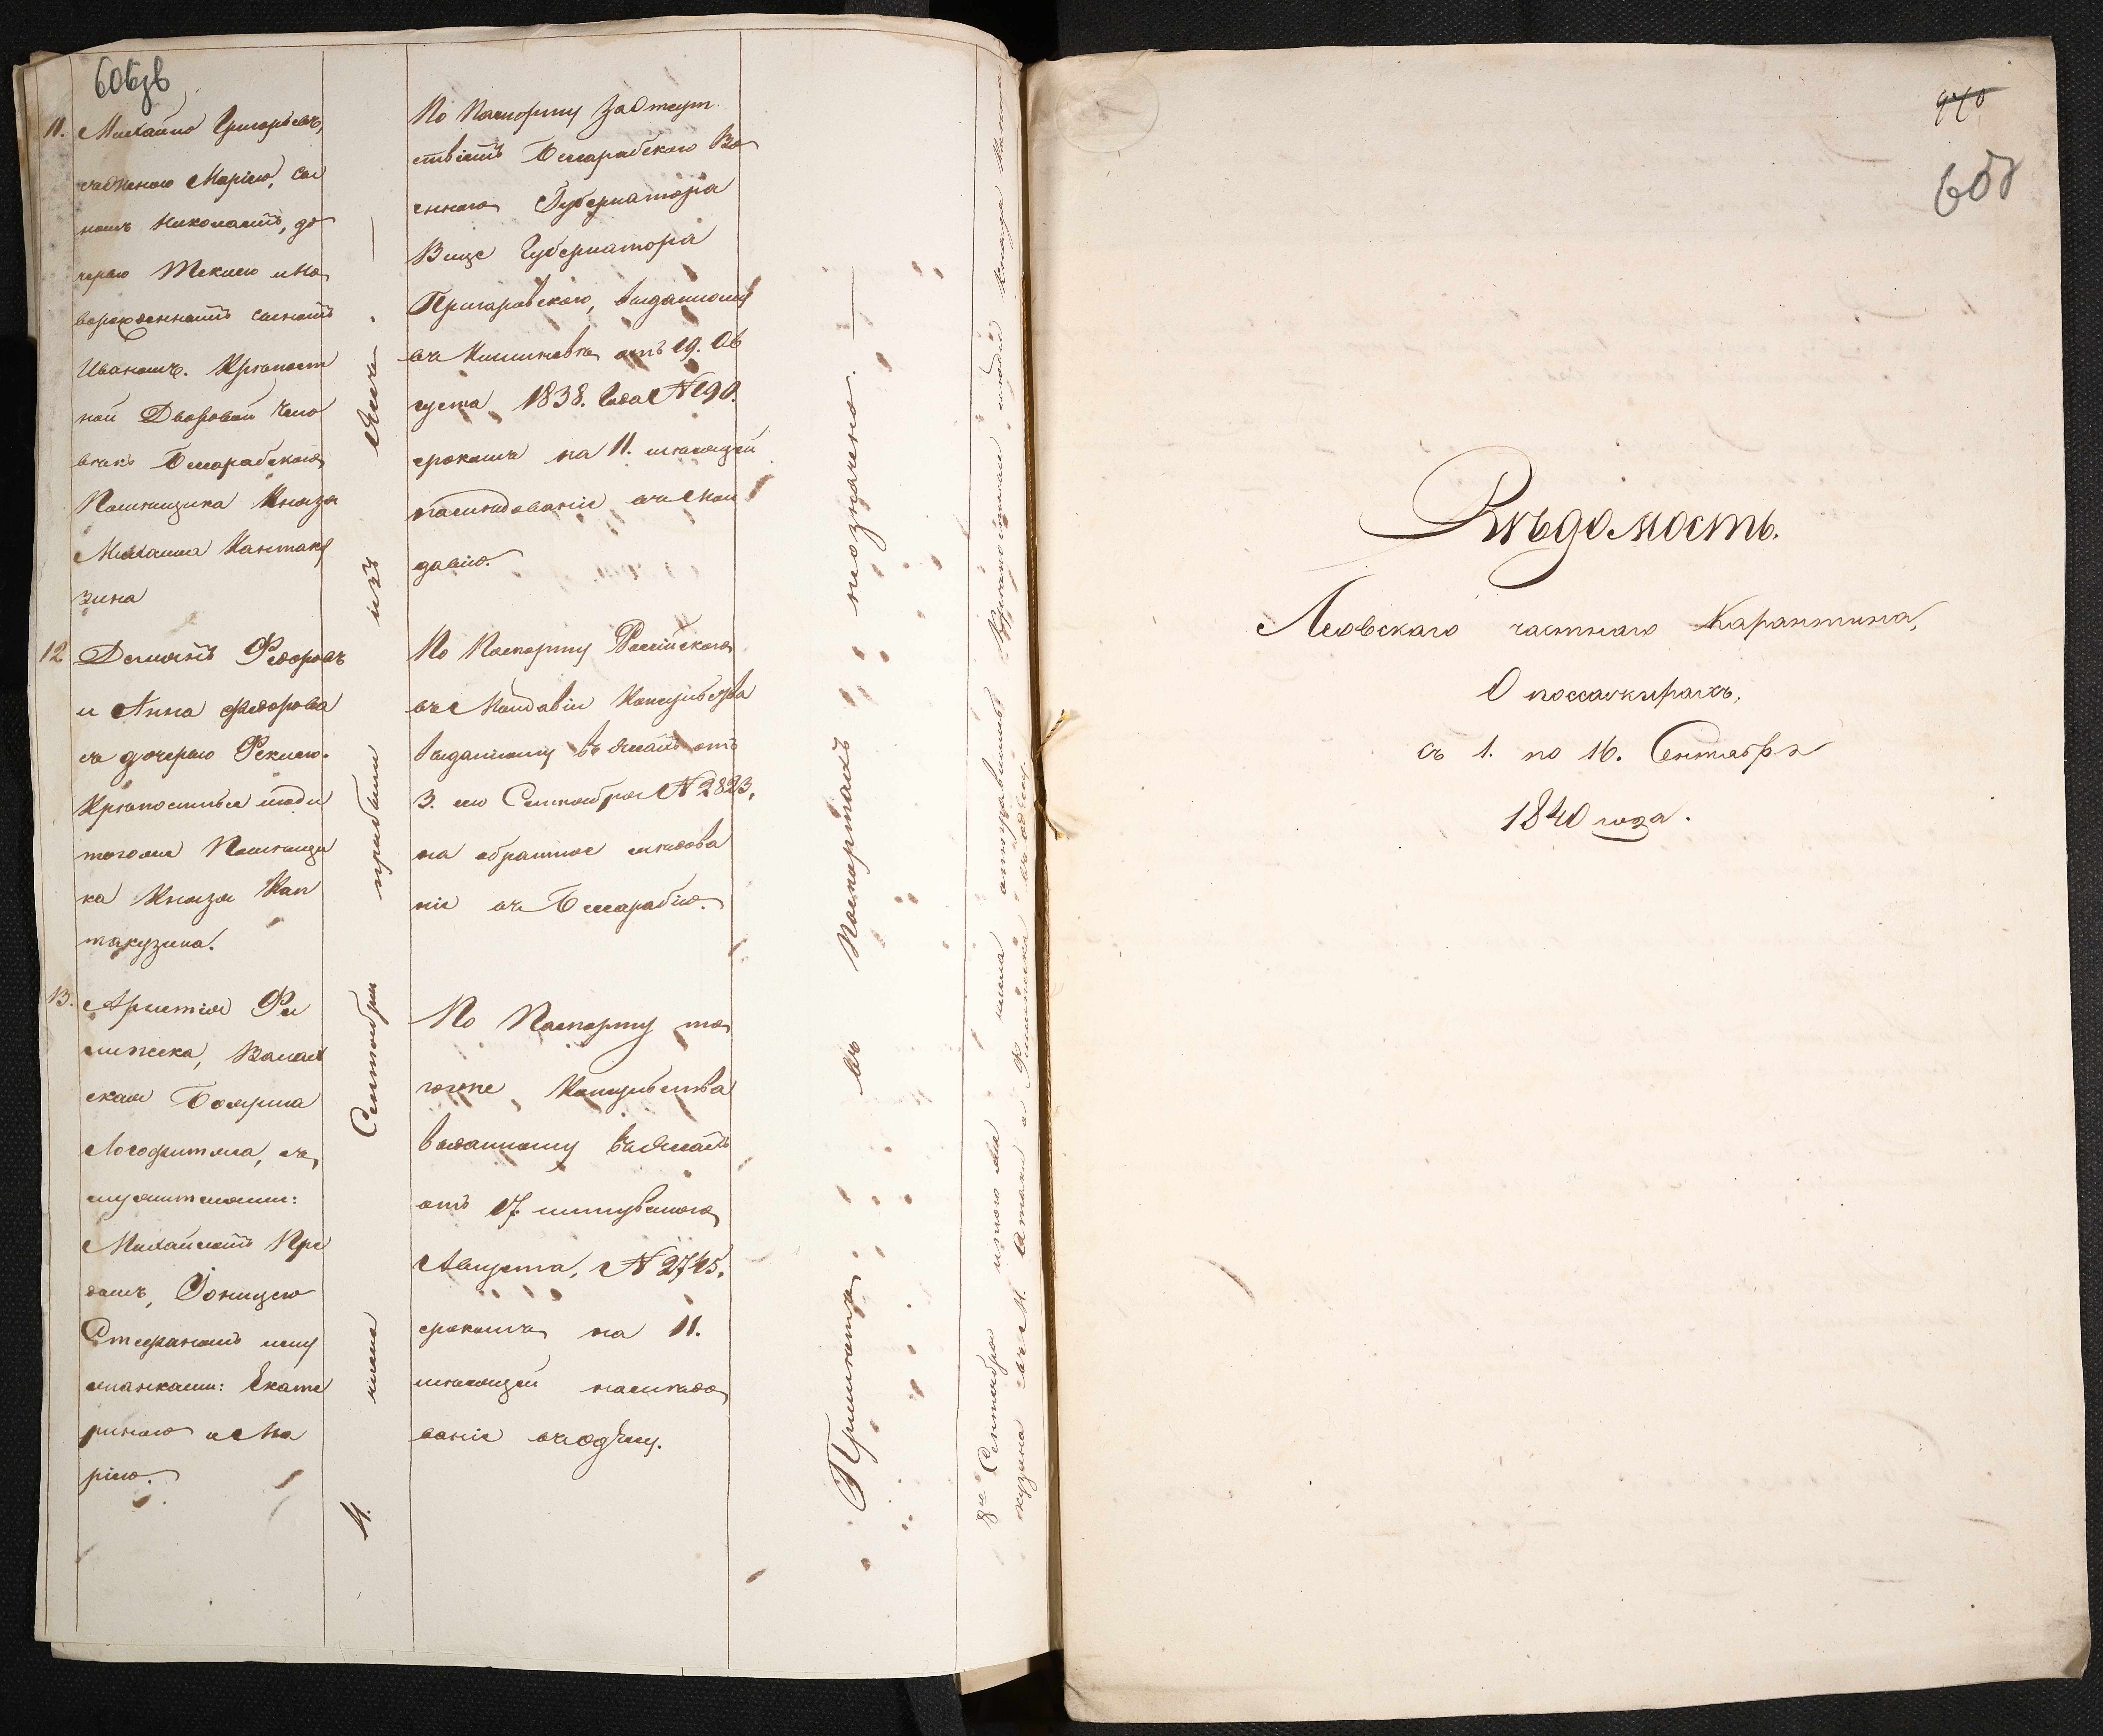 606об
11. Михайло Григорьевъ,
съ женою Маріею, сы
номъ Николаемъ, до
черью Теклею и но
ворожденнымъ сыномъ
Иваномъ. Крѣпост
ной Дворовой Чело
вѣкъ Бессарабскаго
Помѣщика Князя
Михаила Кантаку
зина
12 Демьянъ Федоровъ
и Анна Федорова
съ дочерью Феклею.
Крѣпостные люди
тогоже Помѣщи
ка Князя Кан
такузина.
13. Аристія Фи
липеска, Валах
ская Боярыня
Логофитъша, съ
служителями:
Михайломъ Пре
домъ, Іоницею
Стефаномъ и слу
жанками: Екате
риною и Ма
ріею.
4. числа Сентября прибыли изъ Яссъ
По Паспорту За отсут
ствіемъ Бессарабскаго Во
еннаго Губернатора
Вице Губернатора
Пригаровскаго, выданному
въ Кишиневѣ отъ 29. Ав
густа 1838. Года № 190.
срокомъ на 11. мѣсяцей
на слѣдованіе въ Мол
давію.
По Паспорту Россійскаго
въ Молдавіи Консульства
выданному въ Яссахъ отъ
3. го Сентября № 2823,
на обратное слѣдова
ніе въ Бессарабію.
По Паспорту то
гоже Консульства
выданному въ Яссахъ
отъ 17. минувшаго
Августа, № 2745.
срокомъ на 11.
мѣсяцей на слѣдо
ваніе въ Одессу.
Примѣтъ въ Паспортахъ неозначено.
8го Сентября числа отправились Крѣпостные люди Князя Канта
кузина въ М. Атаки а Филипеска въ Одессу
970
608
Вѣдомость.
Леовскаго частнаго Карантина,
О пассажирахъ,
съ 1. по 16. Сентября
1840 года.